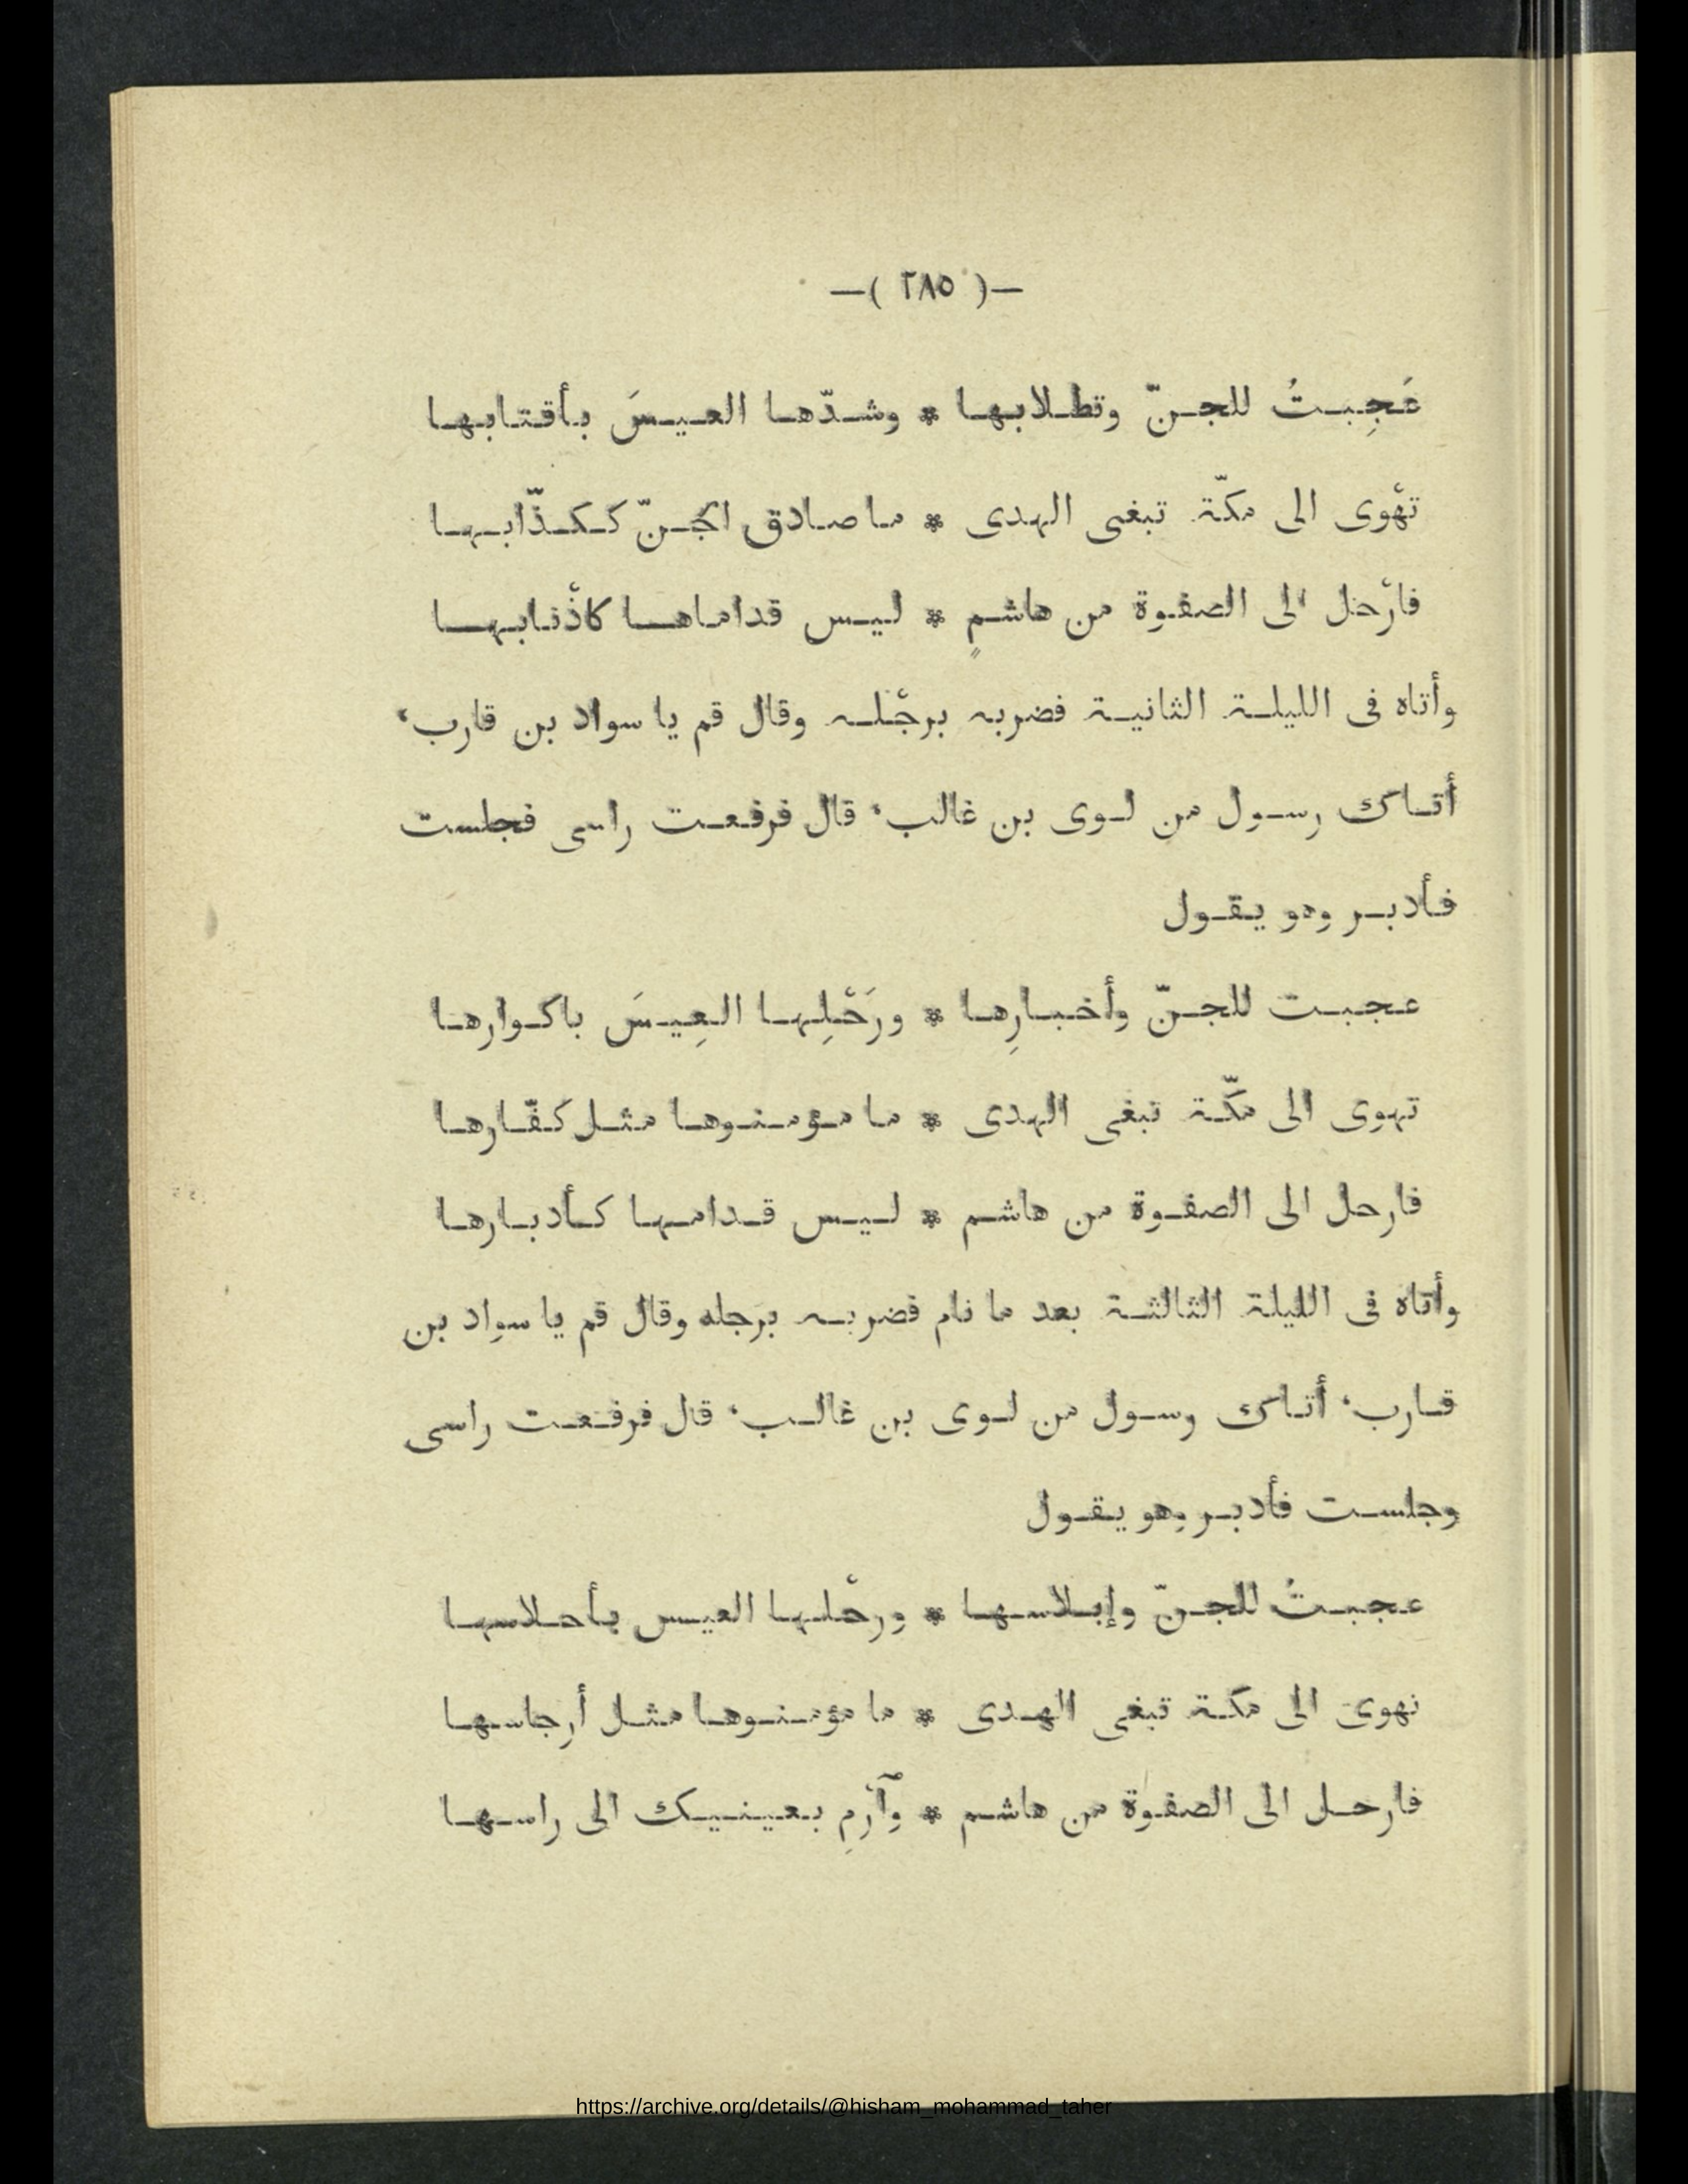 —( ٢٨٥ )—
عَجِبتُ للجنّ وتطلابها * وشدّها العيسَ بأقتابها
تهْوى الى مكّة تبغى الهدى * ما صادق الجنّ ككذّابها
فارْحل الى الصفوة من هاشمٍ * ليس قداماها كاذْنابها
وأتاه فى الليلة الثانية فضربه برجْله وقال قم يا سواد بن قارب،
أتاك رسول من لوى بن غالب، قال فرفعت راسى فجلست
فأدبر وهو يقول
عجبت للجنّ وأخبارِها * ورَحْلِها العِيسَ باكوارها
تهوى الى مكّة تبغى الهدى * ما مؤمنوها مثل كفّارها
فارحل الى الصفوة من هاشم * ليس قدامها كأدبارها
وأتاه فى الليلة الثالثة بعد ما نام فضربه برَجله وقال قم يا سواد بن
قارب، أتاك رسول من لوى بن غالب، قال فرفعت راسى
وجلست فأدبر وهو يقول
عجبتُ للجنّ وإبلاسها * ورحْلها العيس بأحلاسها
تهوى الى مكة تبغى الهدى * ما مؤمنوها مثل أرجاسها
فارحل الى الصفوة من هاشم * وٱرْمِ بعينيك الى راسها
https://archive.org/details/@hisham_mohammad_taher